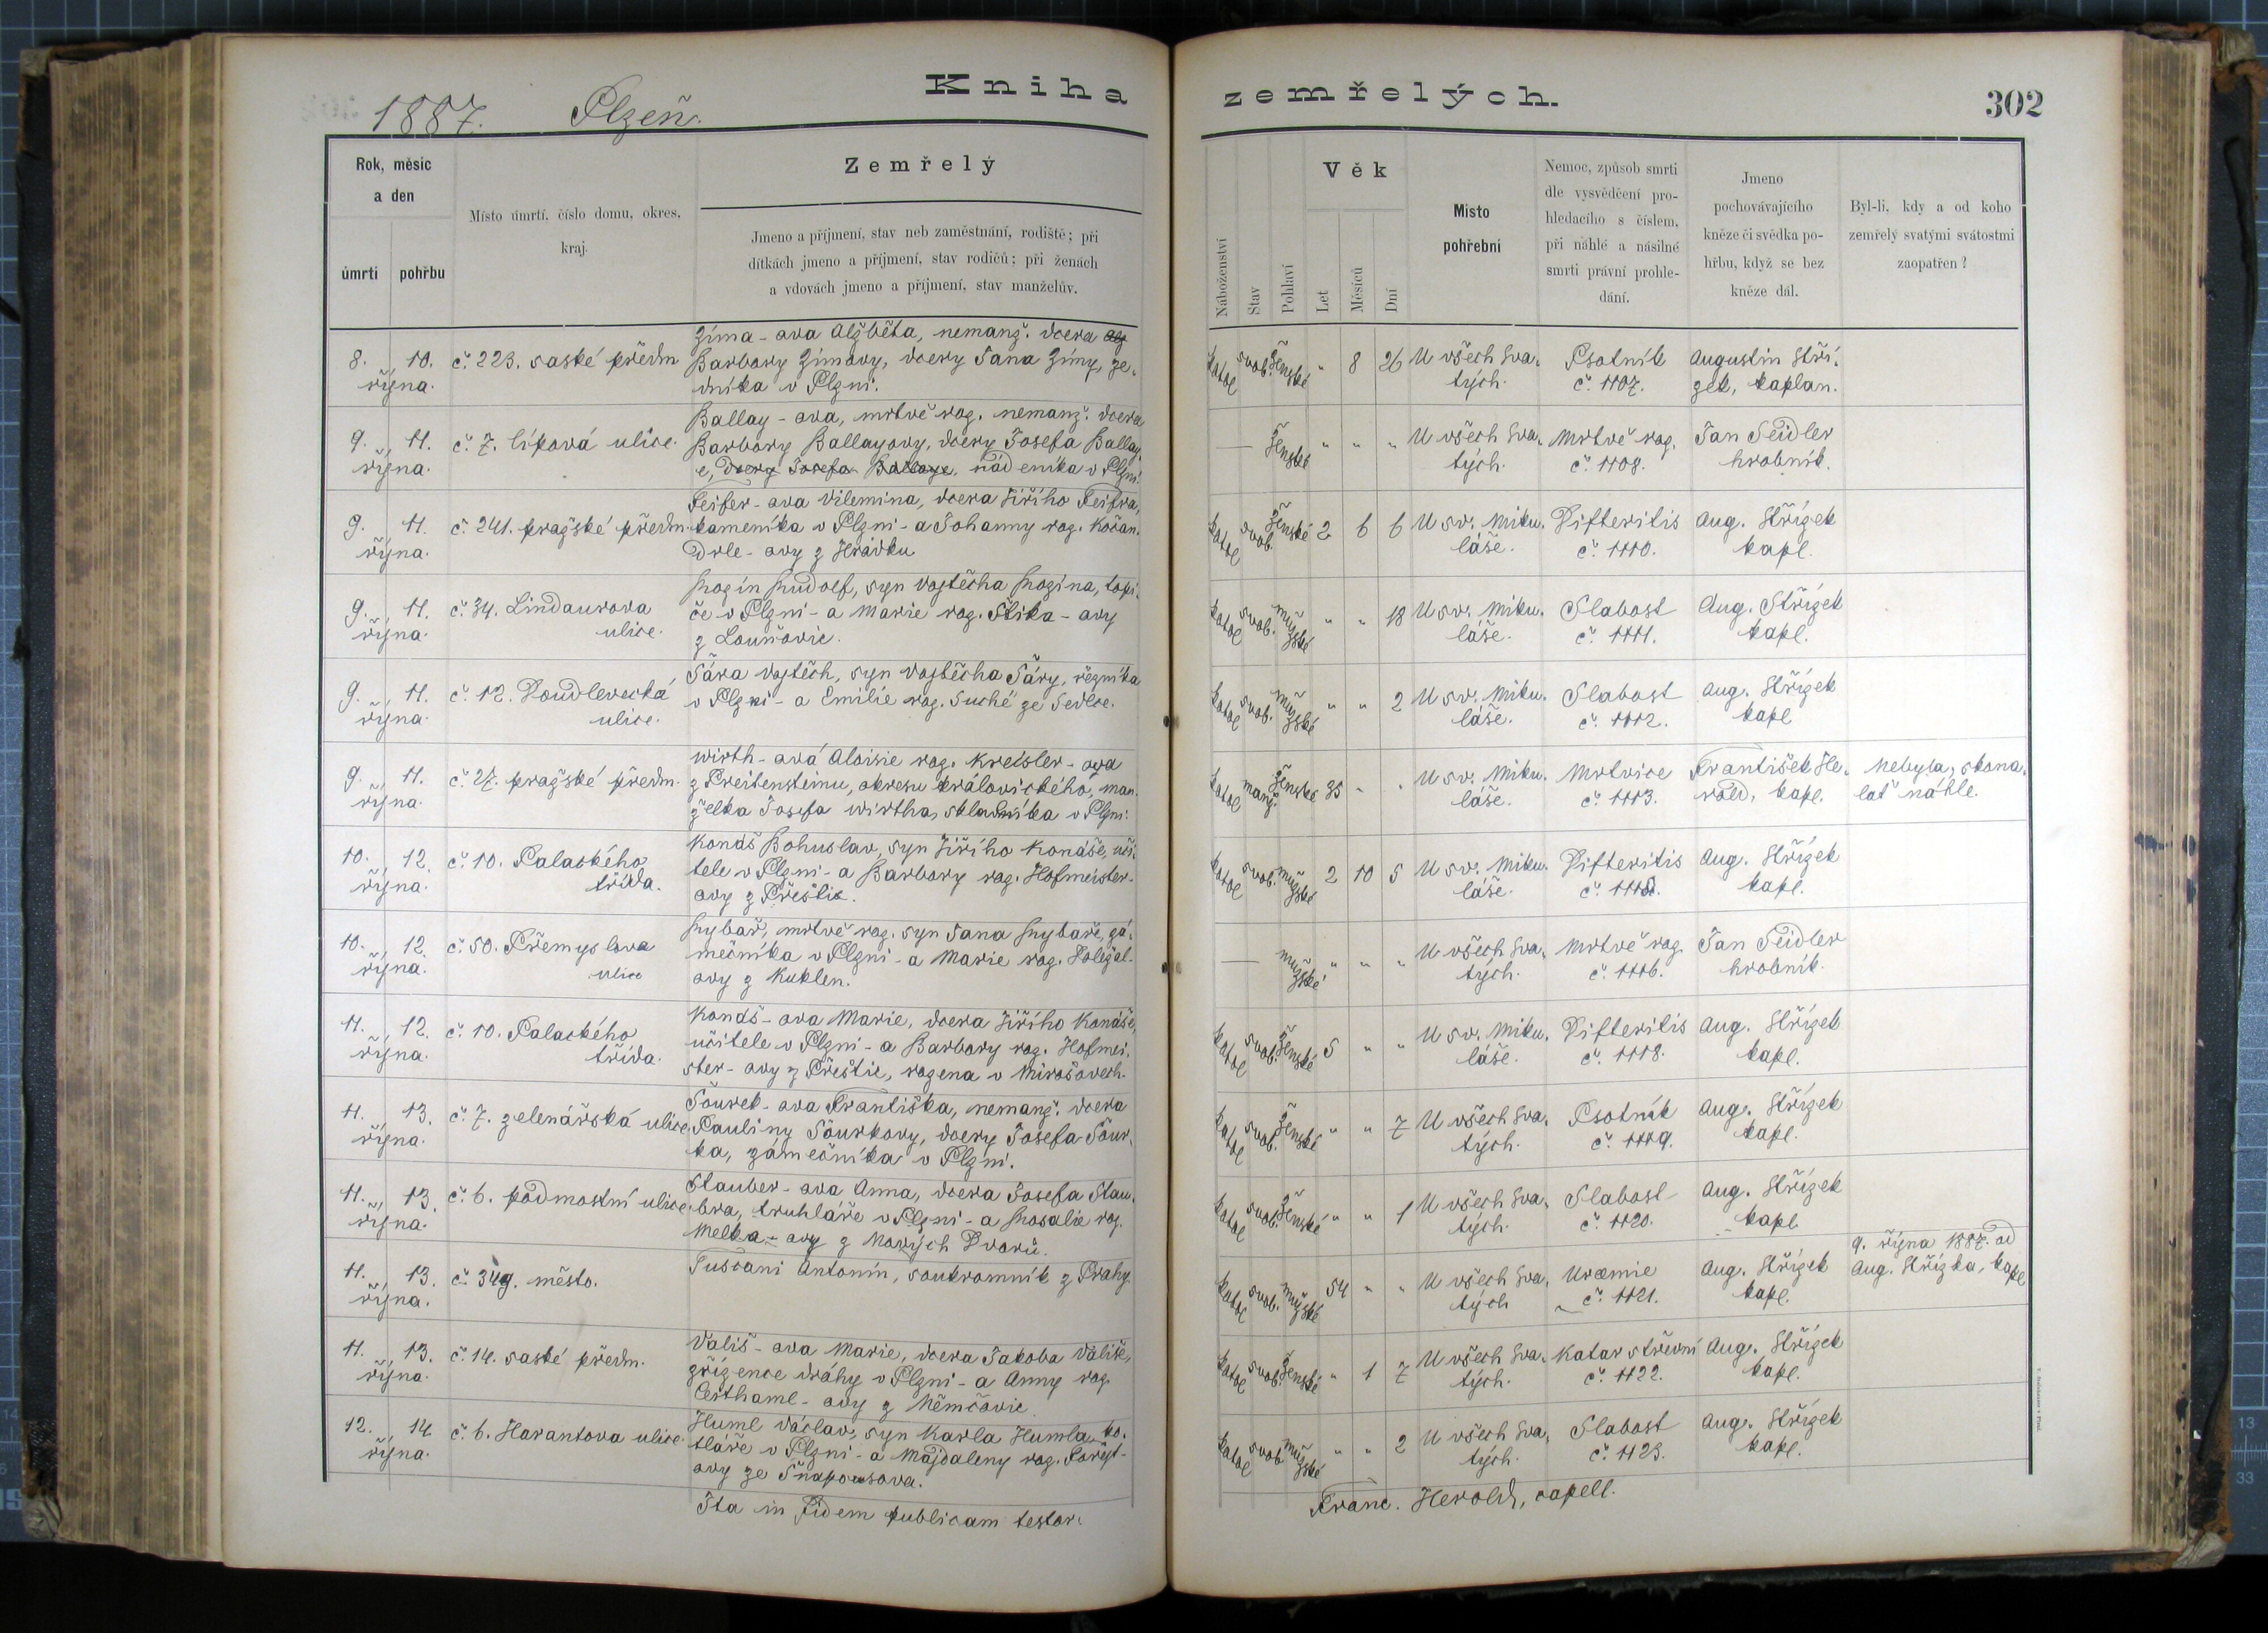 1887. Plzeň.
Kniha zemřelých.
302
Rok, měsíc
a den
úmrtí
pohřbu
Místo úmrtí, číslo domu, okres,
kraj.
Zemřelý
Jmeno a příjmení, stav neb zaměstnání, rodiště; při
dítkách jmeno a příjmení, stav rodičů; při ženách
a vdovách jmeno a příjmení, stav manželův.
Náboženství
Stav
Pohlaví
Věk
Let
Měsíců
Dní
Místo
pohřební
Nemoc, způsob smrti
dle vysvědčení pro-
hledacího s číslem,
při náhlé a násilné
smrti právní prohle-
dání.
Jmeno
pochovávajícího
kněze či svědka po-
hřbu, když se bez
kněze dál.
Byl-li, kdy a od koho
zemřelý svatými svátostmi
zaopatřen?
8. 10.
října.
č. 223. saské předm
Zíma-ova Alžběta, nemanž. dcera
Barbory Zímovy, dcery Jana Zímy, ze-
dníka v Plzni.
katol svob. ženské " 8 26
U všech Sva-
tých.
Psotník
č. 1107.
Augustin Stří-
zek, kaplan.
9. 11.
října.
č. 7. lípová ulice.
Ballay-ova, mrtvě roz. nemanž. dcera
Barbory Ballayovy, dcery Josefa Ballay-
e, dcery Josefa Ballaye, nádeníka v Plzni.
— ženské " " "
U všech Sva-
tých.
Mrtvě roz.
č. 1108.
Jan Seidler
hrobník.
9. 11.
října.
č. 241. pražské předm.
Feifer-ova Vilemina, dcera Jiřího Feifra,
kameníka v Plzni-a Johanny roz. Kořan.
Drle-ovy z Hrádku
katol svob. ženské 2 6 6
U sv. Miku-
láše.
Difteritis
č. 1110.
Aug. Střízek
kapl.
9. 11.
října.
č. 34. Lindaurova
ulice.
Rozín Rudolf, syn Vojtěcha Rozína, topi-
če v Plzni-a Marie roz. Štika-ovy
z Louňovic.
katol svob. mužské " " 18
U sv. Miku-
láše.
Slabost
č. 1111.
Aug. Střízek
kapl.
9. 11.
října.
č. 12. Doudlevecká
ulice.
Sára Vojtěch, syn Vojtěcha Sáry, řezníka
v Plzni-a Emilie roz. Suché ze Sedlce.
katol svob. mužské " " 2
U sv. Miku-
láše.
Slabost
č. 1112.
Aug. Střízek
kapl
9. 11.
října.
č. 27. pražské předm.
Wirth-ová Aloisie roz. Kreisler-ova
z Preitensteinu, okresu královického, man-
želka Josefa Wirtha, skladníka v Plzni.
katol manž. ženské 35 " "
U sv. Miku-
láše.
Mrtvice
č. 1113.
František He-
rold, kapl.
Nebyla, skona-
lať náhle.
10. 12.
října.
č. 10. Palackého
třída.
Konáš Bohuslav, syn Jiřího Konáše, uči-
tele v Plzni-a Barbory roz. Hofmeister-
ovy z Přeštic.
katol svob. mužské 2 10 5
U sv. Miku-
láše.
Difteritis
Aug. Střízek
kapl.
10. 12.
října.
č. 50. Přemyslova
ulice
Rybař, mrtvě roz. syn Jana Rybaře, zá-
mečníka v Plzni-a Marie roz. Holejšl-
ovy z Kuklen.
— mužské " " "
U všech Sva-
tých.
Mrtvě roz
č. 1116.
Jan Seidler
hrobník.
11. 12.
října.
č. 10. Palackého
třída.
Konáš-ova Marie, dcera Jiřího Konáše,
učitele v Plzni-a Barbory roz. Hofmei-
ster-ovy z Přeštic, rozena v Mirošovech.
katol svob. ženské 5 " "
U sv. Miku-
láše.
Difteritis
č. 1118.
Aug. Střízek
kapl.
11. 13.
října.
č. 7. zelenářská ulice
Šourek-ova Františka, nemanž. dcera
Pauliny Šourkovy, dcery Josefa Šour-
ka, zámečníka v Plzni.
katol svob. ženské " " 7
U všech Sva-
tých.
Psotník
č. 1119.
Aug. Střízek
kapl.
11. 13.
října.
č. 6. podmostní ulice
Stauber-ova Anna, dcera Josefa Stau-
bra, truhláře v Plzni-a Rosalie roz.
Melka-ovy z Nových Dvorů.
katol svob. ženské " " 1
U všech Sva-
tých.
Slabost
č. 1120.
Aug. Střízek
kapl
11. 13.
října.
č. 349. město.
Tuscani Antonín, soukromník z Prahy
katol svob. mužské 54 " "
U všech Sva-
tých
Uræmie
č. 1121.
Aug. Střízek
kapl.
9. října 1887. od
Aug. Střízka, kapl
11. 13.
října.
č. 14. saské předm.
Vališ-ova Marie, dcera Jakoba Vališe,
zřízence dráhy v Plzni-a Anny roz.
Cesthaml-ovy z Němčovic.
katol svob. ženské " 1 7
U všech Sva-
tých.
Katar střevní
č. 1122.
Aug. Střízek
kapl.
12. 14.
října.
č. 6. Harantova ulice.
Huml Václav, syn Karla Humla, ko-
tláře v Plzni-a Majdaleny roz. Forejt-
ovy ze Šnapousova.
katol svob mužské " " 2
U všech Sva-
tých.
Slabost
č. 1123.
Aug. Střízek
kapl.
Ita in fidem publicam testor:
Franc. Herold, capell.